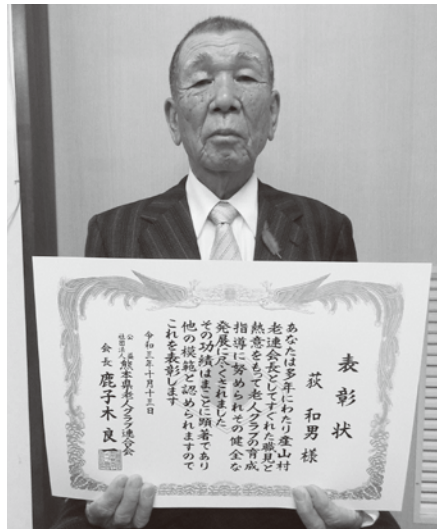 表彰状
荻 和男 様
あなたは多年にわたり産山村
老連会長としてすぐれた識見と
熱意をもって老人クラブの育成
指導に努められその健全な
発展に尽くされました
その功績はまことに顕著であり
他の模範と認められますので
これを表彰します
令和三年十月十三日
公益社団法人 熊本県老人クラブ連合会
会長 鹿子木 良一